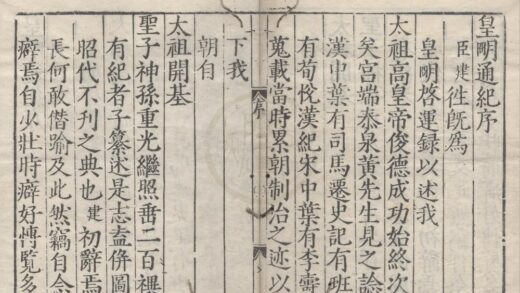 皇明通紀序
臣建徃既為
皇明啓運録以述我
太祖高皇帝俊德成功始終次
矣宫端泰泉黃先生見之諗
漢中葉有司馬遷史記有班
有荀悅漢紀宋中葉有李燾
蒐載當時累朝制治之迹以
序
下我
朝自
太祖開基
聖子神孫重光繼照垂二百禩
有紀者子纂述是志盍倂圖
昭代不刊之典也建初辭焉
長何敢僭踰及此然竊自念
癖焉自少壯時癖好愽覧多